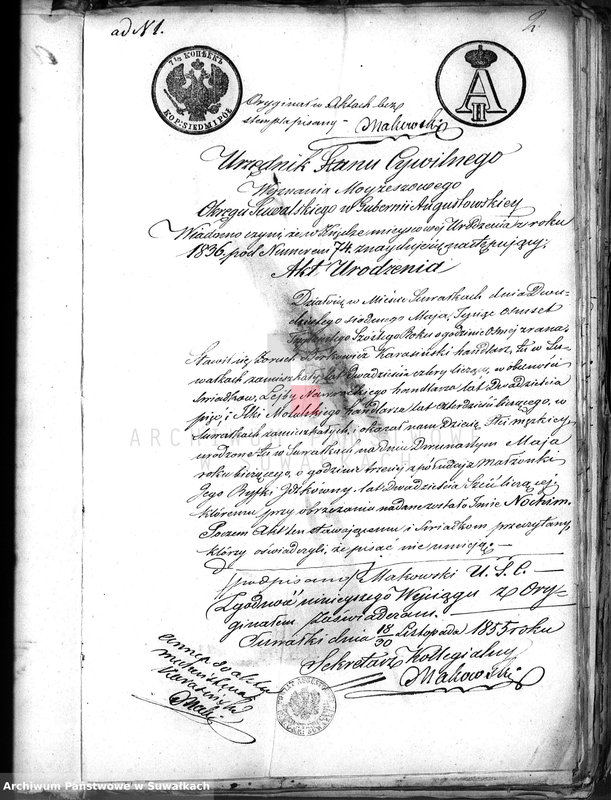 ad N 1.
2
7½ КОПѢЕКЪ
KOP: SIEDM I PÓŁ
A II
Oryginał w Aktach bez
stempla pisany –
Makowski
Urzędnik Stanu Cywilnego
Wyznania Moyżeszowego
Okręgu Suwalskiego w Gubernii Augustowskiey
Wiadomo czyni, że w Księdze mieyscowey Urodzenia z roku
1836, pod Numerem 74. znayduje się następujący:
Akt Urodzenia
Działo się w Mieście Suwałkach dnia Dwu-
dziestego siódmego Maja, Tysiąc Ośmset
Trzydziestego Szóstego Roku o godzinie Ósmej z rana,
Stawił się Boruch Berkowicz Karasiński handlarz, tu w Su-
wałkach zamieszkały, lat dwadzieścia cztery liczący, w obecności
świadków, Leyby handlarza lat Dwadzieścia
pięć i Icki handlarza lat czterdzieści liczącego, w
Suwałkach zamieszkałych, i okazał nam Dziecię Płci męzkiey,
urodzone tu w Suwałkach na dniu Dwunastym Maja
roku bieżącego, o godzinie trzeciej z południa z Małżonki
Jego Ryfki Joskówny, lat Dwadzieścia liczącej,
któremu przy obrzezaniu nadane zostało Imie Nochim.
Poczem Akt ten stawającemu i Świadkom przeczytany,
którzy oświadczyli, że pisać nie umieją. –
(podpisano) Makowski U. S. C. –
Zgodność ninieyszego Wyciągu z Ory-
ginałem zaświadczam.
Suwałki dnia 18/30 Listopada 1855 roku
Sekretarz Kollegialny
Makowski
Karasiński
Mak.
ARCHIWUM PAŃSTWOWE
W SUWAŁKACH
Archiwum Państwowe w Suwałkach